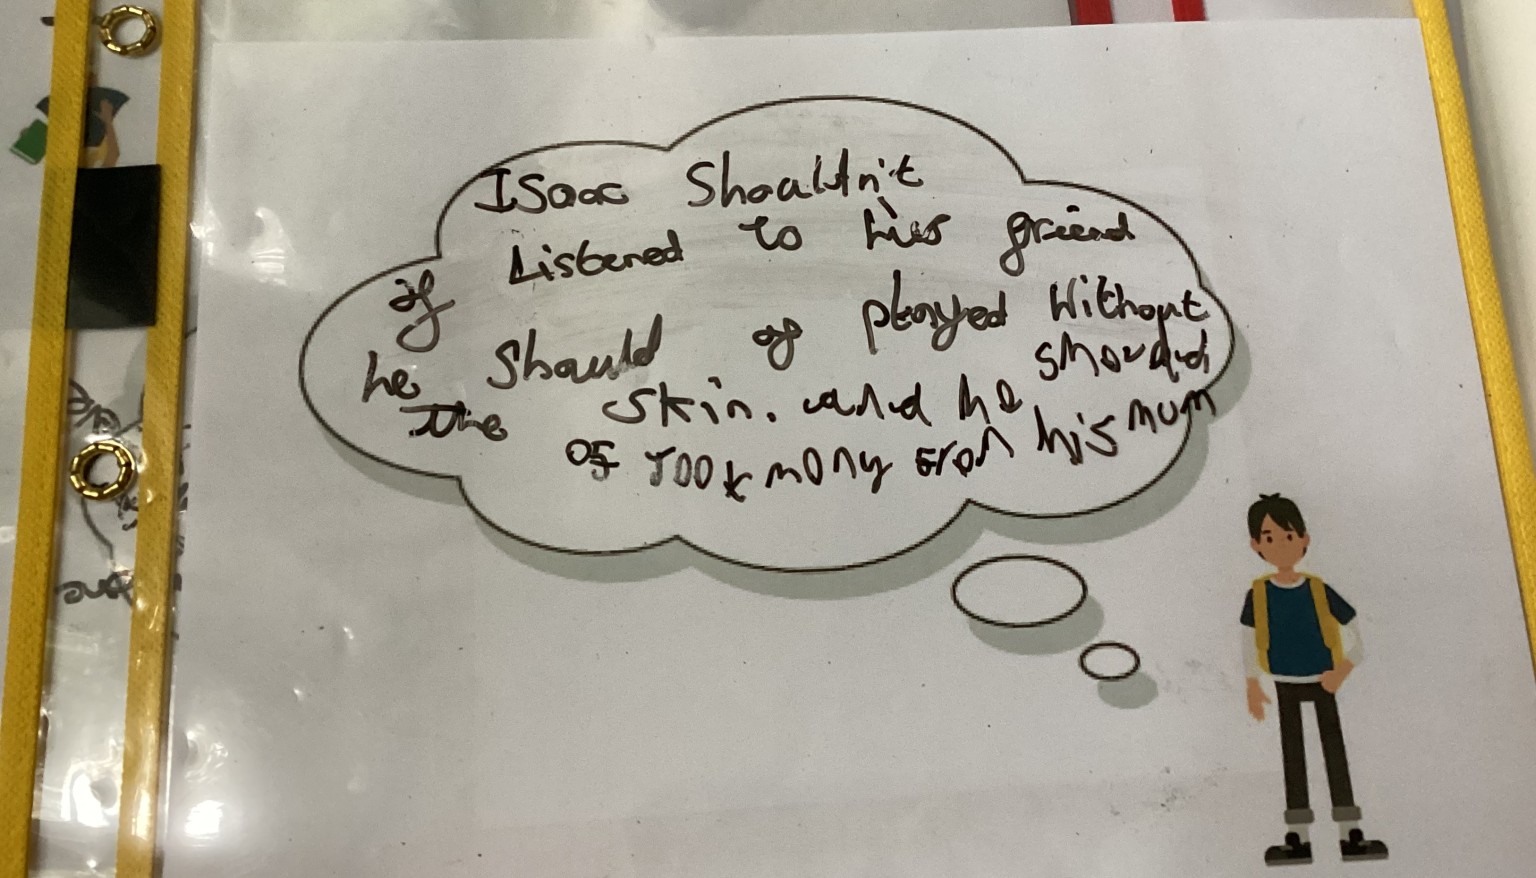 Isaac Shouldn't
if Listened to his griend
he Should of played Without
the skin. and he shoudd
of took mony from his mum